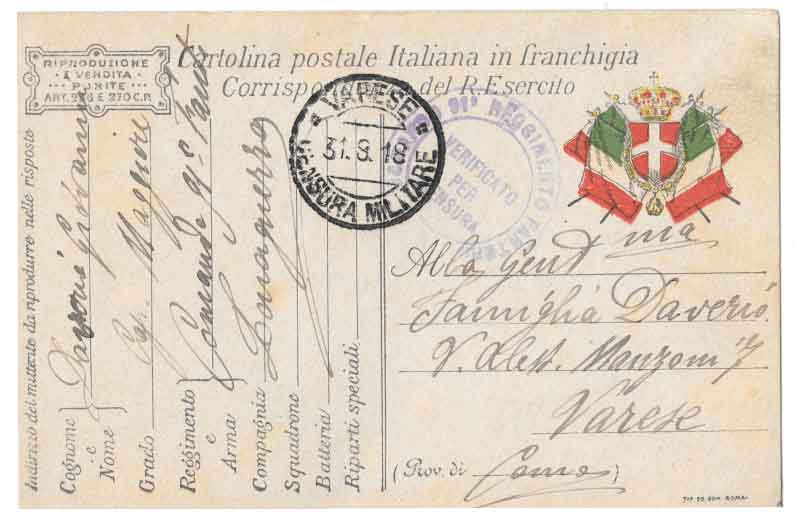 RIPRODUZIONE
E VENDITA
PUNITE
ART. 276 E 270 C.P.
Cartolina postale Italiana in franchigia
Corrispondenza del R. Esercito
VARESE
31.8.18
CENSURA MILITARE
91º REGGIMENTO FANTERIA
VERIFICATO
PER
CENSURA
Indirizzo del mittente da riprodurre nelle risposte
Cognome e Nome Giovanni
Grado Cap. Maggiore
Reggimento e Arma Comando 91º Fant
Compagnia Zona guerra
Squadrone
Batteria
Riparti speciali
Alla Gent ma
Famiglia Daverio
V. Aless. Manzoni 7
Varese
(Prov. di Como)
TIP. ED. ROMA